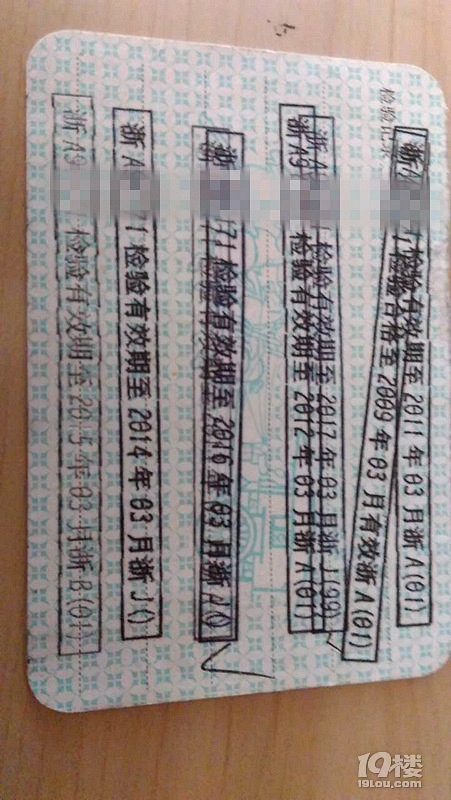 检验记录
浙A
检验有效期至2011年03月浙A(01)
检验合格至2009年03月有效浙A(01)
浙A
检验有效期至2017年03月浙J(99)
浙A9
检验有效期至2012年03月浙A(01)
浙
71检验有效期至2016年03月浙
浙A
1检验有效期至2014年03月浙J()
浙A9
检验有效期至2015年03月浙B(01)
19楼
19lou.com